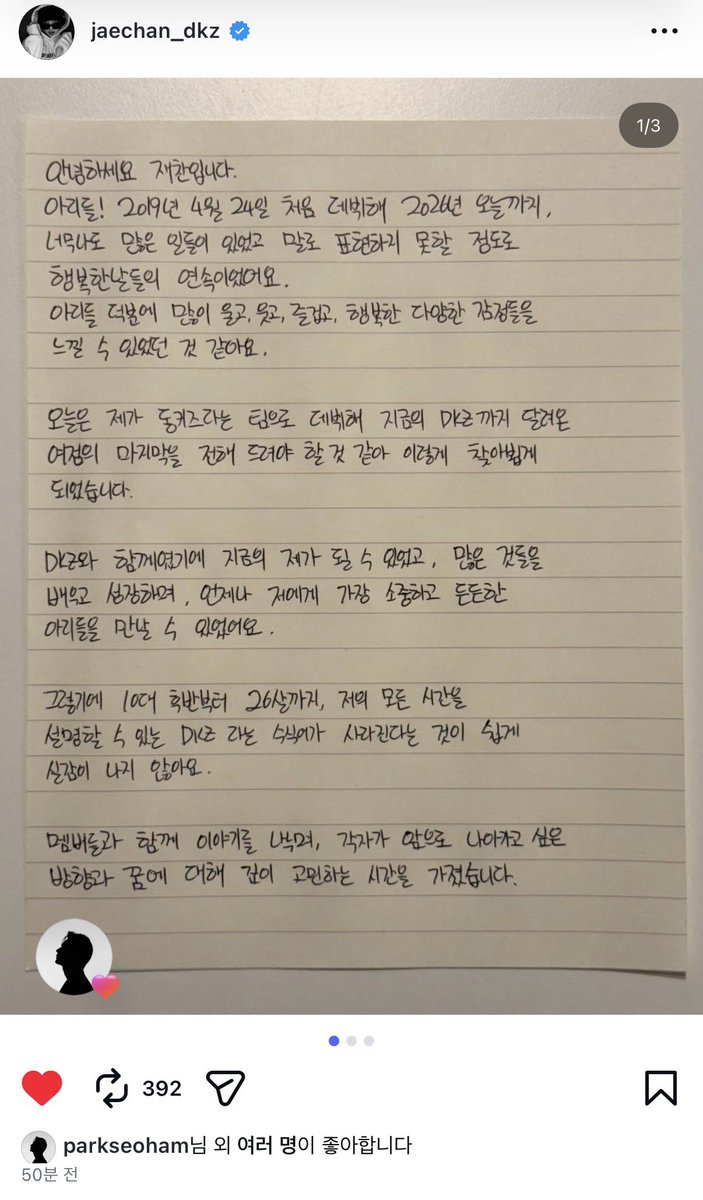 jaechan_dkz
1/3
안녕하세요 재찬입니다.
아리들! 2019년 4월 24일 처음 데뷔해 2026년 오늘까지,
너무나도 많은 일들이 있었고 말로 표현하지 못할 정도로
행복한날들의 연속이었어요.
아리들 덕분에 많이 울고, 웃고, 즐겁고, 행복한 다양한 감정들을
느낄 수 있었던 것 같아요.
오늘은 제가 동키즈라는 팀으로 데뷔해 지금의 DKZ까지 달려온
여정의 마지막을 전해 드려야 할 것 같아 이렇게 찾아뵙게
되었습니다.
DKZ와 함께였기에 지금의 제가 될 수 있었고, 많은 것들을
배우고 성장하며, 언제나 저에게 가장 소중하고 든든한
아리들을 만날 수 있었어요.
그렇기에 10대 후반부터 26살까지, 저의 모든 시간을
설명할 수 있는 DKZ 라는 수식어가 사라진다는 것이 쉽게
실감이 나지 않아요.
멤버들과 함께 이야기를 나누며, 각자가 앞으로 나아가고 싶은
방향과 꿈에 대해 깊이 고민하는 시간을 가졌습니다.
392
parkseoham님 외 여러 명이 좋아합니다
50분 전